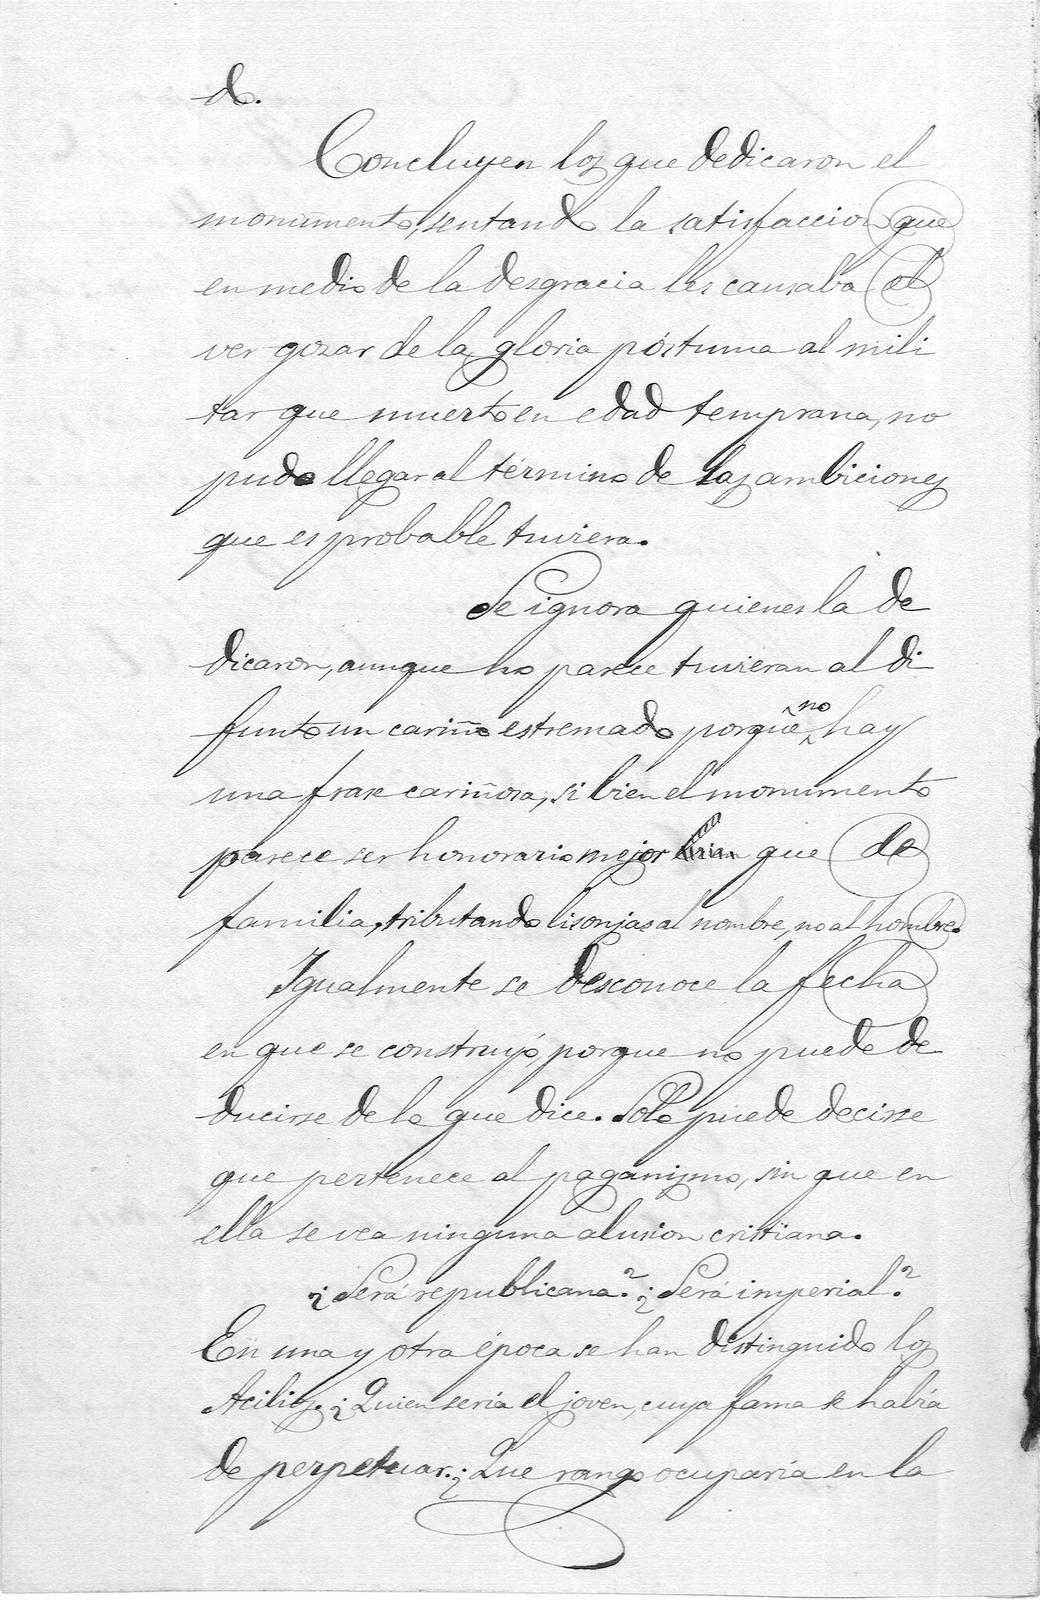 do.
Concluyen los que dedicaron el
monumento, sentando la satisfaccion que
en medio de la desgracia les causaba el
ver gozar de la gloria póstuma al mili
tar que muerto en edad temprana, no
pudo llegar al término de las ambiciones
que es probable tuviera.
Se ignora quienes la de
dicaron, aunque no parece tuvieran al di
funto un cariño estremado porque no hay
una frase cariñosa, si bien el monumento
parece ser honorario mejor que de
familia, tributando lisonjas al nombre, no al hombre.
Igualmente se desconoce la fecha
en que se construyó, porque no puede de
ducirse de lo que dice. Solo puede decirse
que pertenece al paganismo, sin que en
ella se vea ninguna alusion cristiana.
¿Será republicana? ¿Será imperial?
En una y otra época se han distinguido los
Acilios. ¿Quien seria el joven, cuya fama se habia
de perpetuar. ¿Que rango ocuparia en la